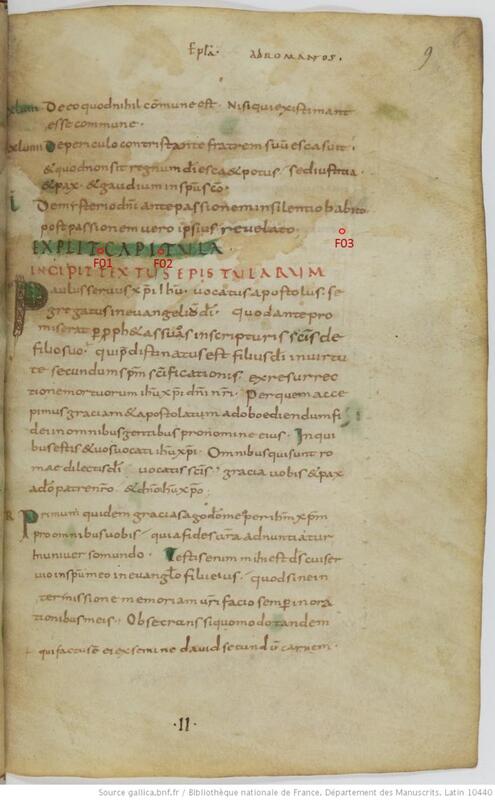 Epła. AD ROMANOS.
9
De eo quod nihil cōmune est. Nisi qui existimant
esse commune.
De periculo contristante fratrem suū esca sui.
& quod non sit regnum dī esca & potus. sed iustitia
& pax. & gaudium in spū scō.
De mysterio dnī ante passionem in silentio habito
post passionem vero ipsius revelato.
EXPLIT CAPITULA
F01 F02 F03
INCIPIT TEXTUS EPISTULARUM
Paulus servus xpī ihū. vocatus apostolus. se
gregatus in euangeliū dī. quod ante pro
miserat p̄ p̄ph& as suas in scripturis scīs de
filio suo. qui p̄distinatus est filius dī in virtu
te secundum spm̄ scīficationis. ex resurrec
tione mortuorum ihū xpī dnī nrī. Per quem acce
pimus graciam & apostolatum ad oboediendum fi
dei in omnibus gentibus pro nomine eius. In qui
bus estis & vos vocati ihū xpī. Omnibus qui sunt ro
mae dilectis dī vocatis scīs. gracia vobis & pax
a dō patre nrō. & dnō ihū xpō.
Primum quidem gracias ago dō meo per ihm̄ xpm̄
pro omnibus vobis. quia fides vrā adnuntiatur
In universo mundo. Testis enim mihi est ds̄ cui ser
vio in spū meo in euanglō filii eius. quod sine in
termissione memoriam vrī facio semper in ora
tionibus meis. Obsecrans si quomodo tandem
qui factus ē ei ex semine david secundū carnem.
.II.
Source gallica.bnf.fr / Bibliothèque nationale de France. Département des Manuscrits. Latin 10440